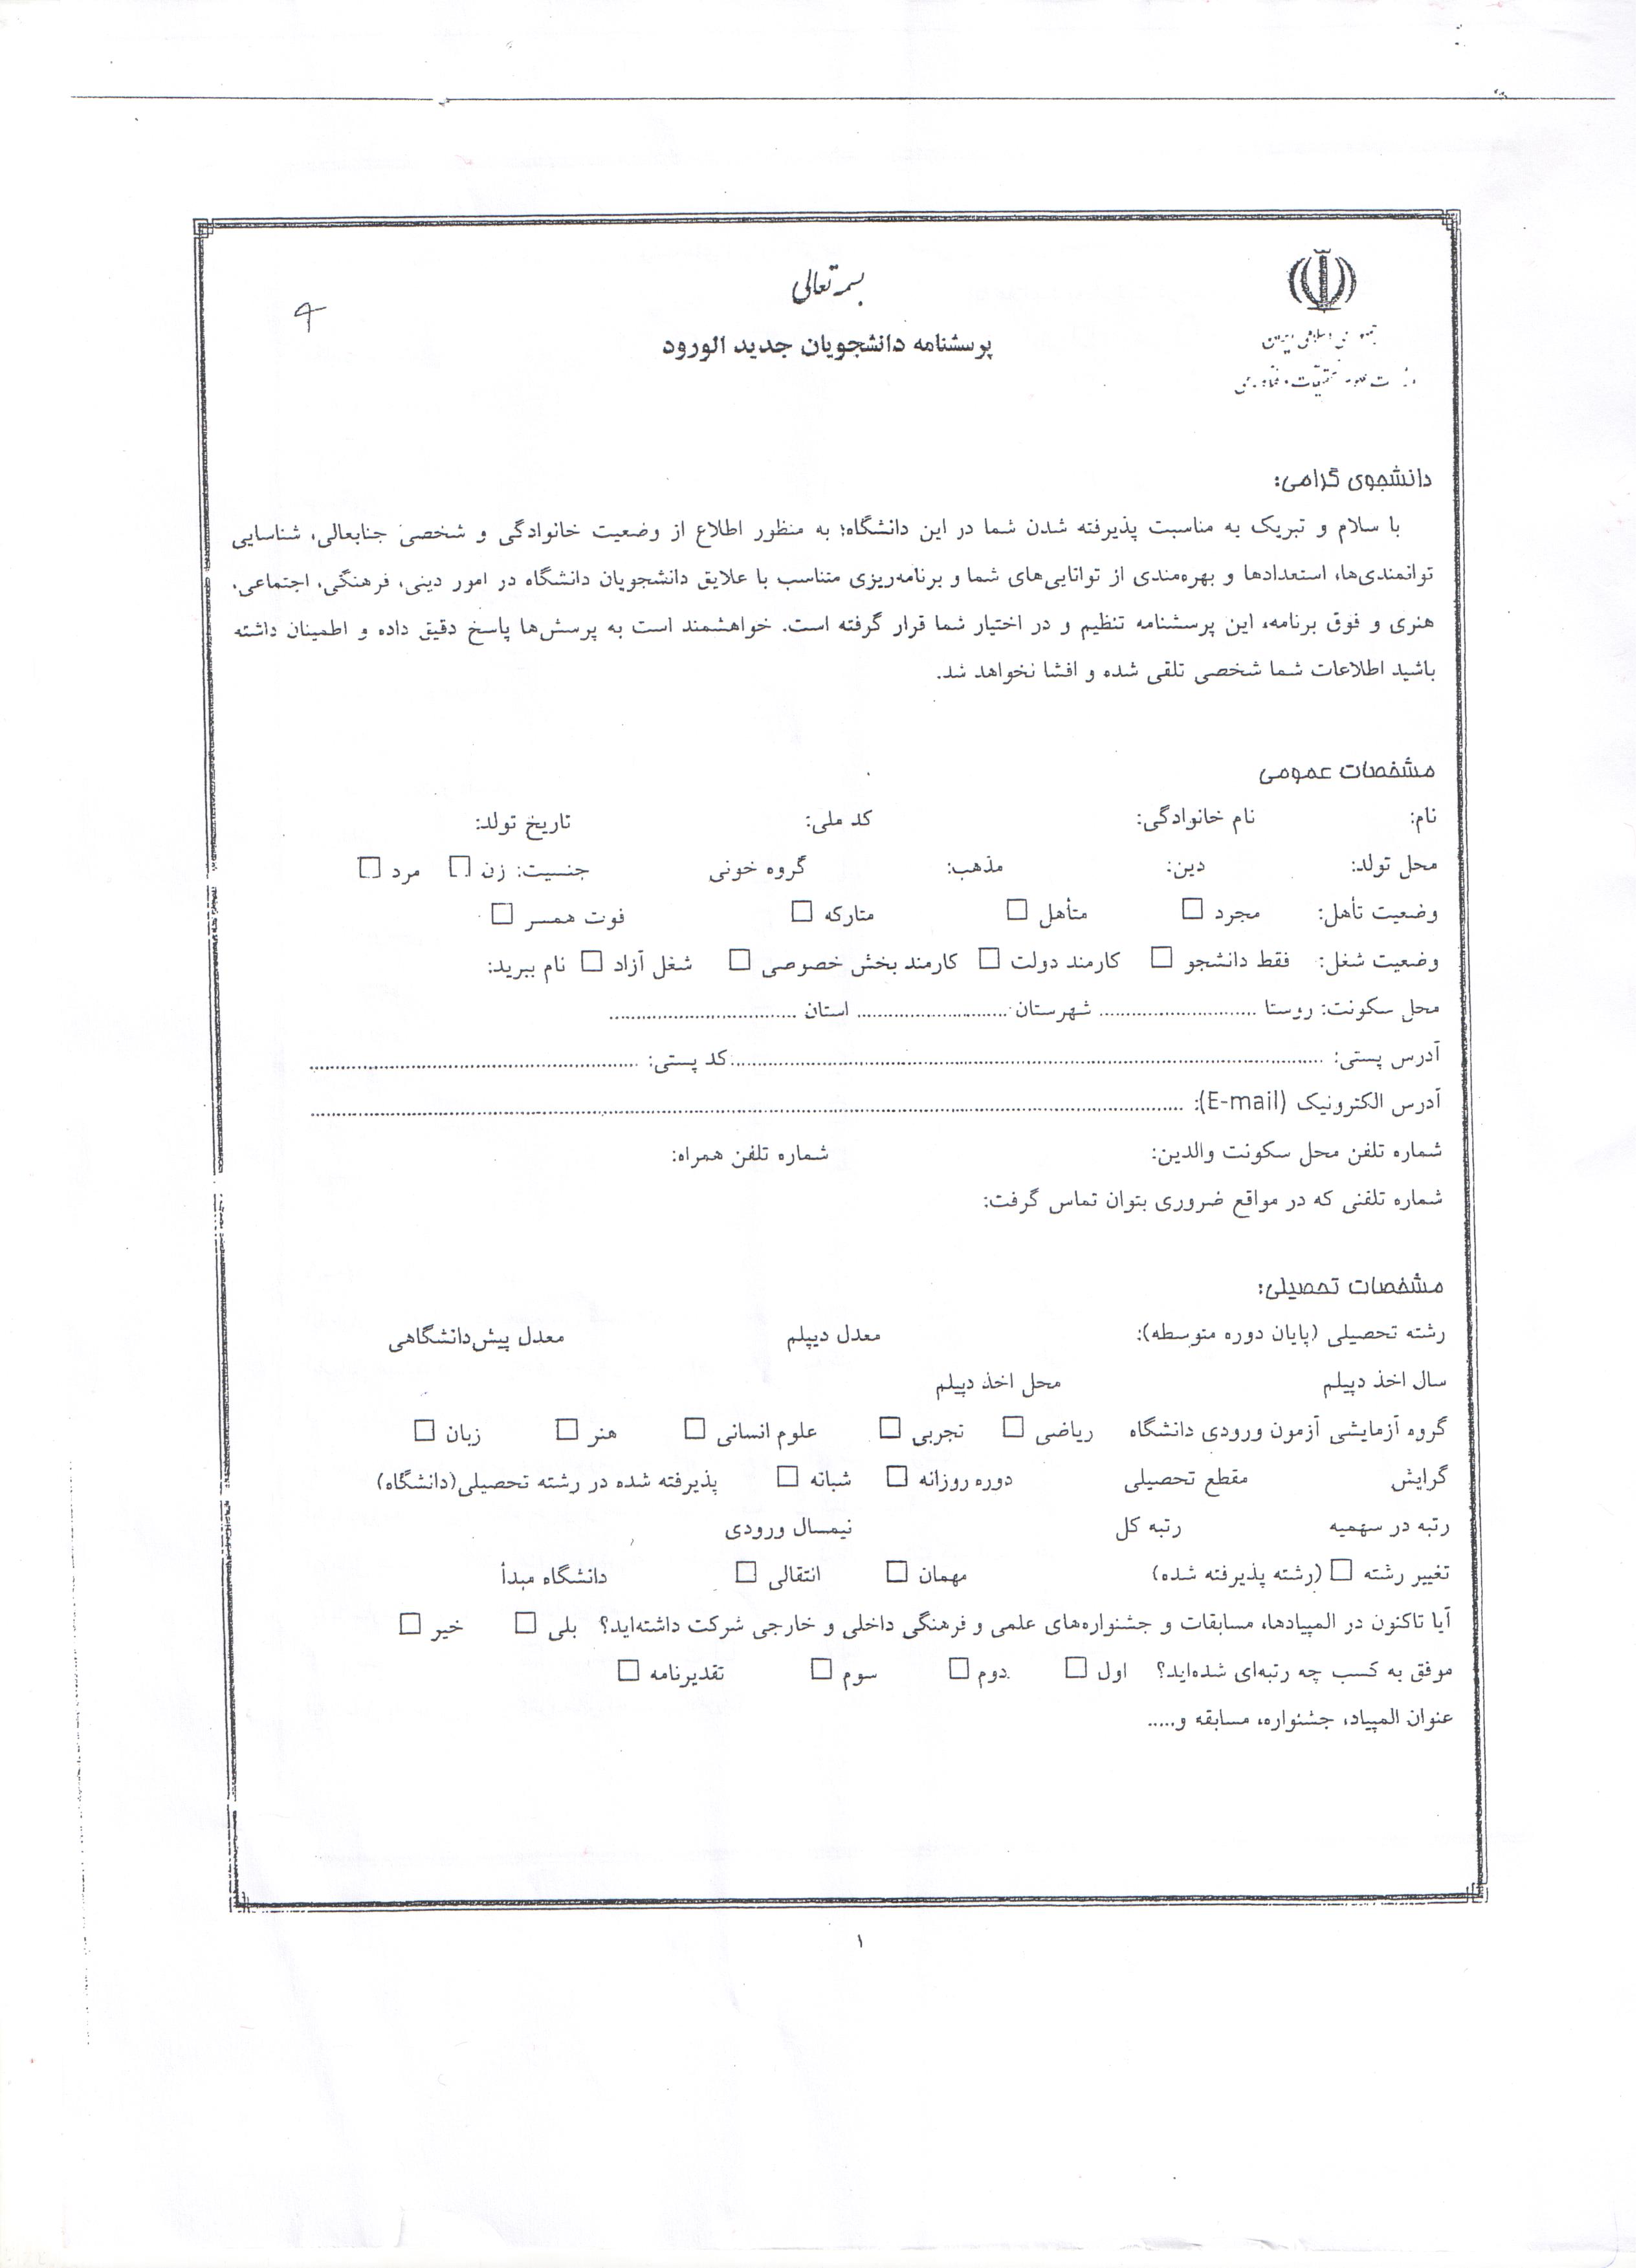 بسمه تعالی
پرسشنامه دانشجویان جدید الورود
دانشجوی گرامی:
با سلام و تبریک به مناسبت پذیرفته شدن شما در این دانشگاه؛ به منظور اطلاع از وضعیت خانوادگی و شخصی جنابعالی، شناسایی
توانمندی‌ها، استعدادها و بهره‌مندی از توانایی‌های شما و برنامه‌ریزی متناسب با علایق دانشجویان دانشگاه در امور دینی، فرهنگی، اجتماعی،
هنری و فوق برنامه، این پرسشنامه تنظیم و در اختیار شما قرار گرفته است. خواهشمند است به پرسش‌ها پاسخ دقیق داده و اطمینان داشته
باشید اطلاعات شما شخصی تلقی شده و افشا نخواهد شد.
مشخصات عمومی
نام: نام خانوادگی: کد ملی: تاریخ تولد:
محل تولد: دین: مذهب: گروه خونی جنسیت: زن □ مرد □
وضعیت تأهل: مجرد □ متأهل □ متارکه □ فوت همسر □
وضعیت شغل: فقط دانشجو □ کارمند دولت □ کارمند بخش خصوصی □ شغل آزاد □ نام ببرید:
محل سکونت: روستا .......................... شهرستان .......................... استان ..........................
آدرس پستی: .......................... کد پستی: ..........................
آدرس الکترونیک (E-mail): ..........................
شماره تلفن محل سکونت والدین: شماره تلفن همراه:
شماره تلفنی که در مواقع ضروری بتوان تماس گرفت:
مشخصات تحصیلی:
رشته تحصیلی (پایان دوره متوسطه): معدل دیپلم معدل پیش‌دانشگاهی
سال اخذ دیپلم محل اخذ دیپلم
گروه آزمایشی آزمون ورودی دانشگاه ریاضی □ تجربی □ علوم انسانی □ هنر □ زبان □
گرایش مقطع تحصیلی دوره روزانه □ شبانه □ پذیرفته شده در رشته تحصیلی(دانشگاه)
رتبه در سهمیه رتبه کل نیمسال ورودی
تغییر رشته □ (رشته پذیرفته شده) مهمان □ انتقالی □ دانشگاه مبدأ
آیا تاکنون در المپیادها، مسابقات و جشنواره‌های علمی و فرهنگی داخلی و خارجی شرکت داشته‌اید؟ بلی □ خیر □
موفق به کسب چه رتبه‌ای شده‌اید؟ اول □ دوم □ سوم □ تقدیرنامه □
عنوان المپیاد، جشنواره، مسابقه و.....
۱